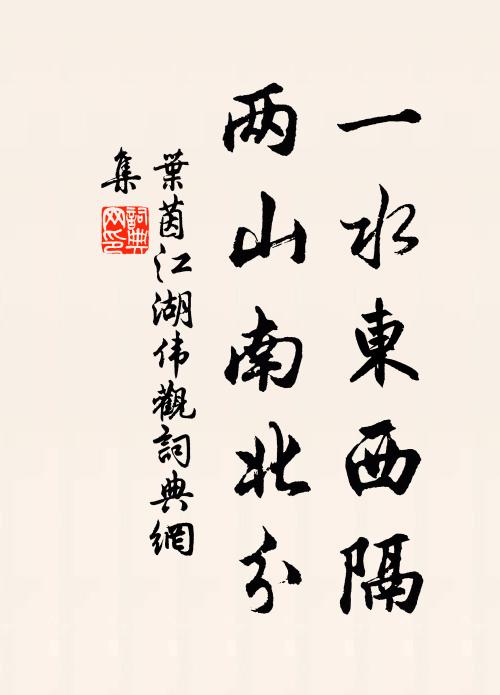 一水東西隔
两山南北分
葉茵江湖伟觀詞典網
集
詞典網印